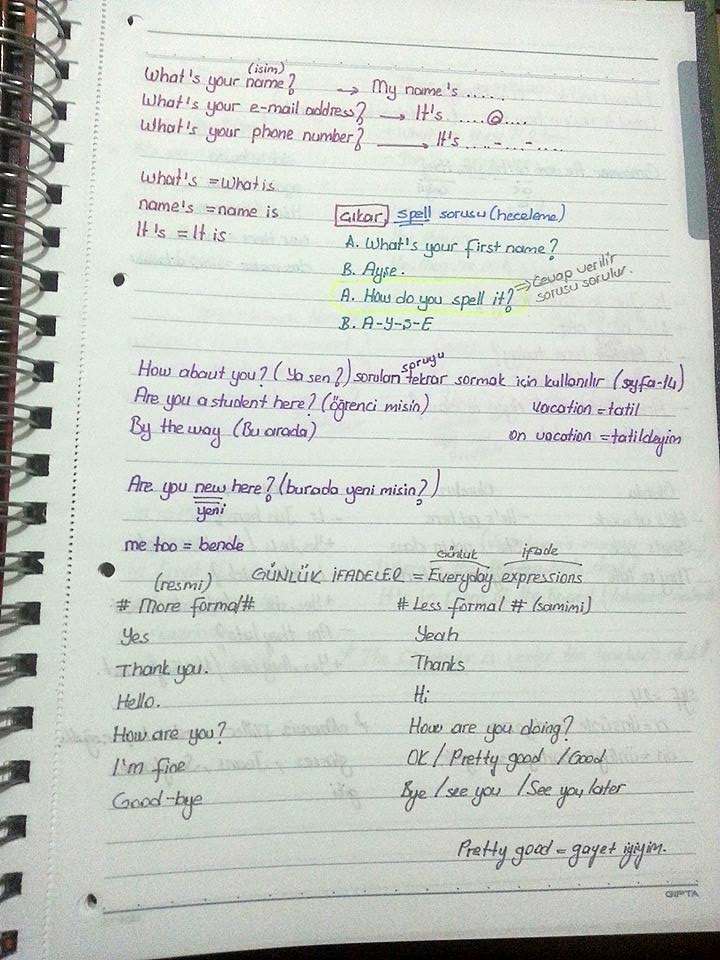 (isim)
What's your name? → My name's .....
What's your e-mail address? → It's ....@....
What's your phone number? → It's ....-..-.....
What's = What is
name's = name is
It's = It is
Çıkar spell sorusu (heceleme)
A. What's your first name?
B. Ayşe.
A. How do you spell it? ⇒ Cevap verilir
sorusu sorulur.
B. A-Y-S-E
How about you? (Ya sen?) sorulan soruyu tekrar sormak için kullanılır (syfa-14)
Are you a student here? (öğrenci misin) vacation = tatil
By the way (Bu arada) on vacation = tatildeyim
Are you new here? (burada yeni misin?)
yeni
me too = bende
Günlük ifade
GÜNLÜK İFADELER = Everyday expressions
(resmi)
# More formal # # Less formal # (samimi)
Yes Yeah
Thank you. Thanks
Hello. Hi
How are you? How are you doing?
I'm fine OK / Pretty good / Good
Good-bye Bye / see you / See you later
Pretty good = gayet iyiyim.
GIPTA